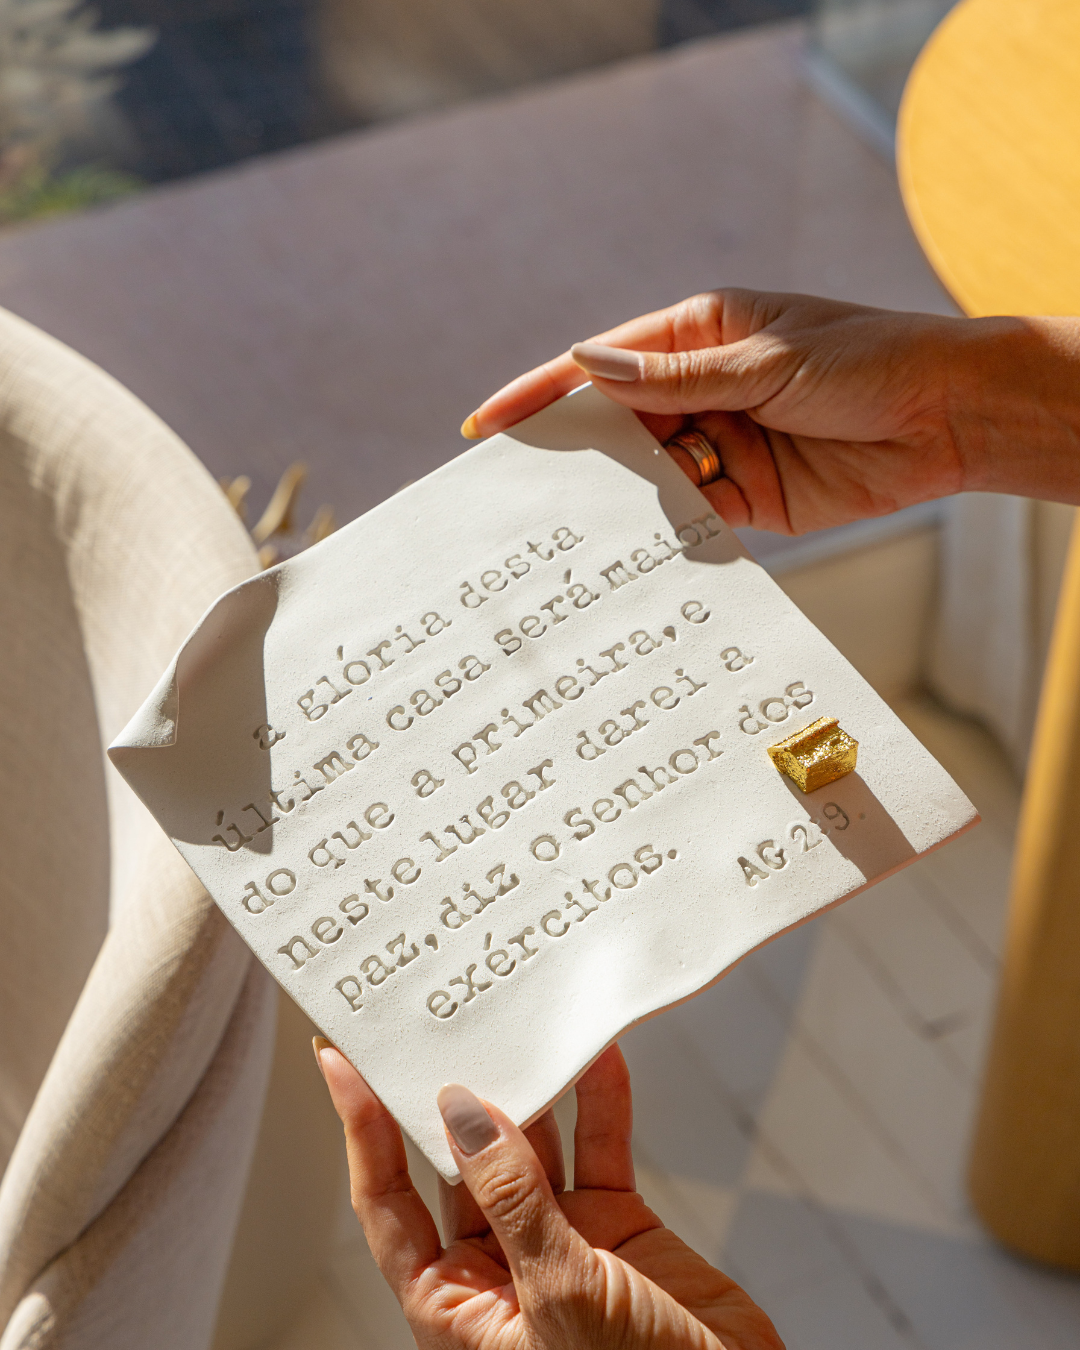 a glória desta
última casa será maior
do que a primeira, e
neste lugar darei a
paz, diz o senhor dos
exércitos.
AG 2:9.